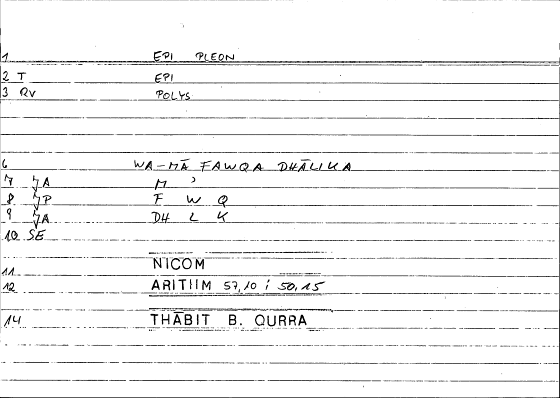 1 EPI PLEON
2 T EPI
3 RV POLYS
6 WA-MĀ FAWQA DHĀLIKA
7 ϟA M ʾ
8 ϟP F W Q
9 ϟA DH L K
10 SE
11 NICOM
12 ARITIIM 57,10 i 50,15
14 THĀBIT B. QURRA